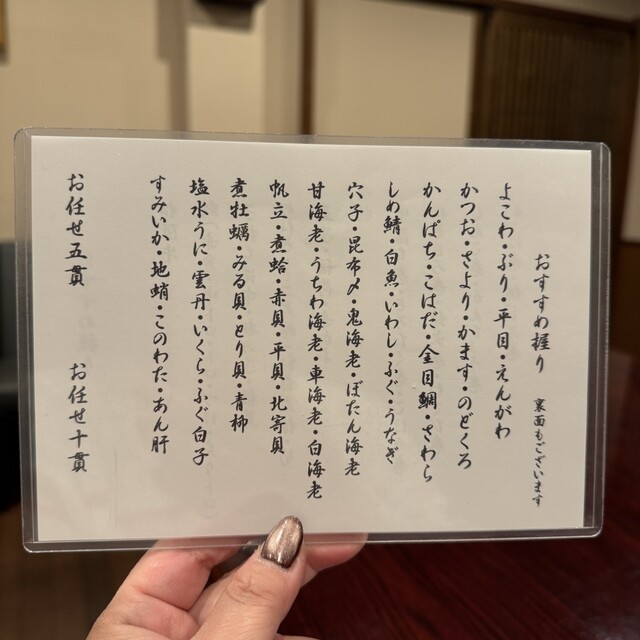 おすすめ握り　裏面もございます
よこわ・ぶり・平目・えんがわ
かつお・さより・かます・のどくろ
かんぱち・こはだ・金目鯛・さわら
しめ鯖・白魚・いわし・ふぐ・うなぎ
穴子・昆布〆・鬼海老・ぼたん海老
甘海老・うちわ海老・車海老・白海老
帆立・煮蛤・赤貝・平貝・北寄貝
煮牡蠣・みる貝・とり貝・青柳
塩水うに・雲丹・いくら・ふぐ白子
すみいか・地蛸・このわた・あん肝
お任せ五貫　お任せ十貫